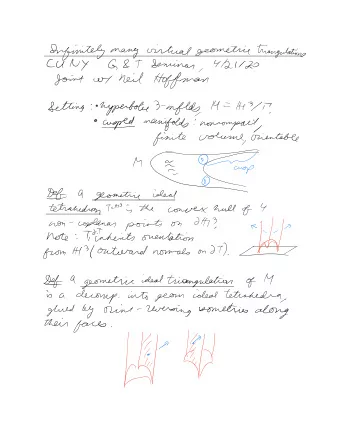 Infinitely many virtual geometric triangulations
CUNY G&T Seminar, 4/21/20
Joint w/ Neil Hoffman
Setting: • hyperbolic 3-mflds, M = H³/Γ.
• cusped manifolds: noncompact,
finite volume, orientable
M
cusp
Def A geometric ideal
tetrahedron T⊂H³ is the convex hull of 4
non-coplanar points on ∂H³.
Note: ∂T inherits orientation
from H³ (outward normals on ∂T).
Def A geometric ideal triangulation of M
is a decomp. into geom ideal tetrahedra,
glued by orient-reversing isometries along
their faces.